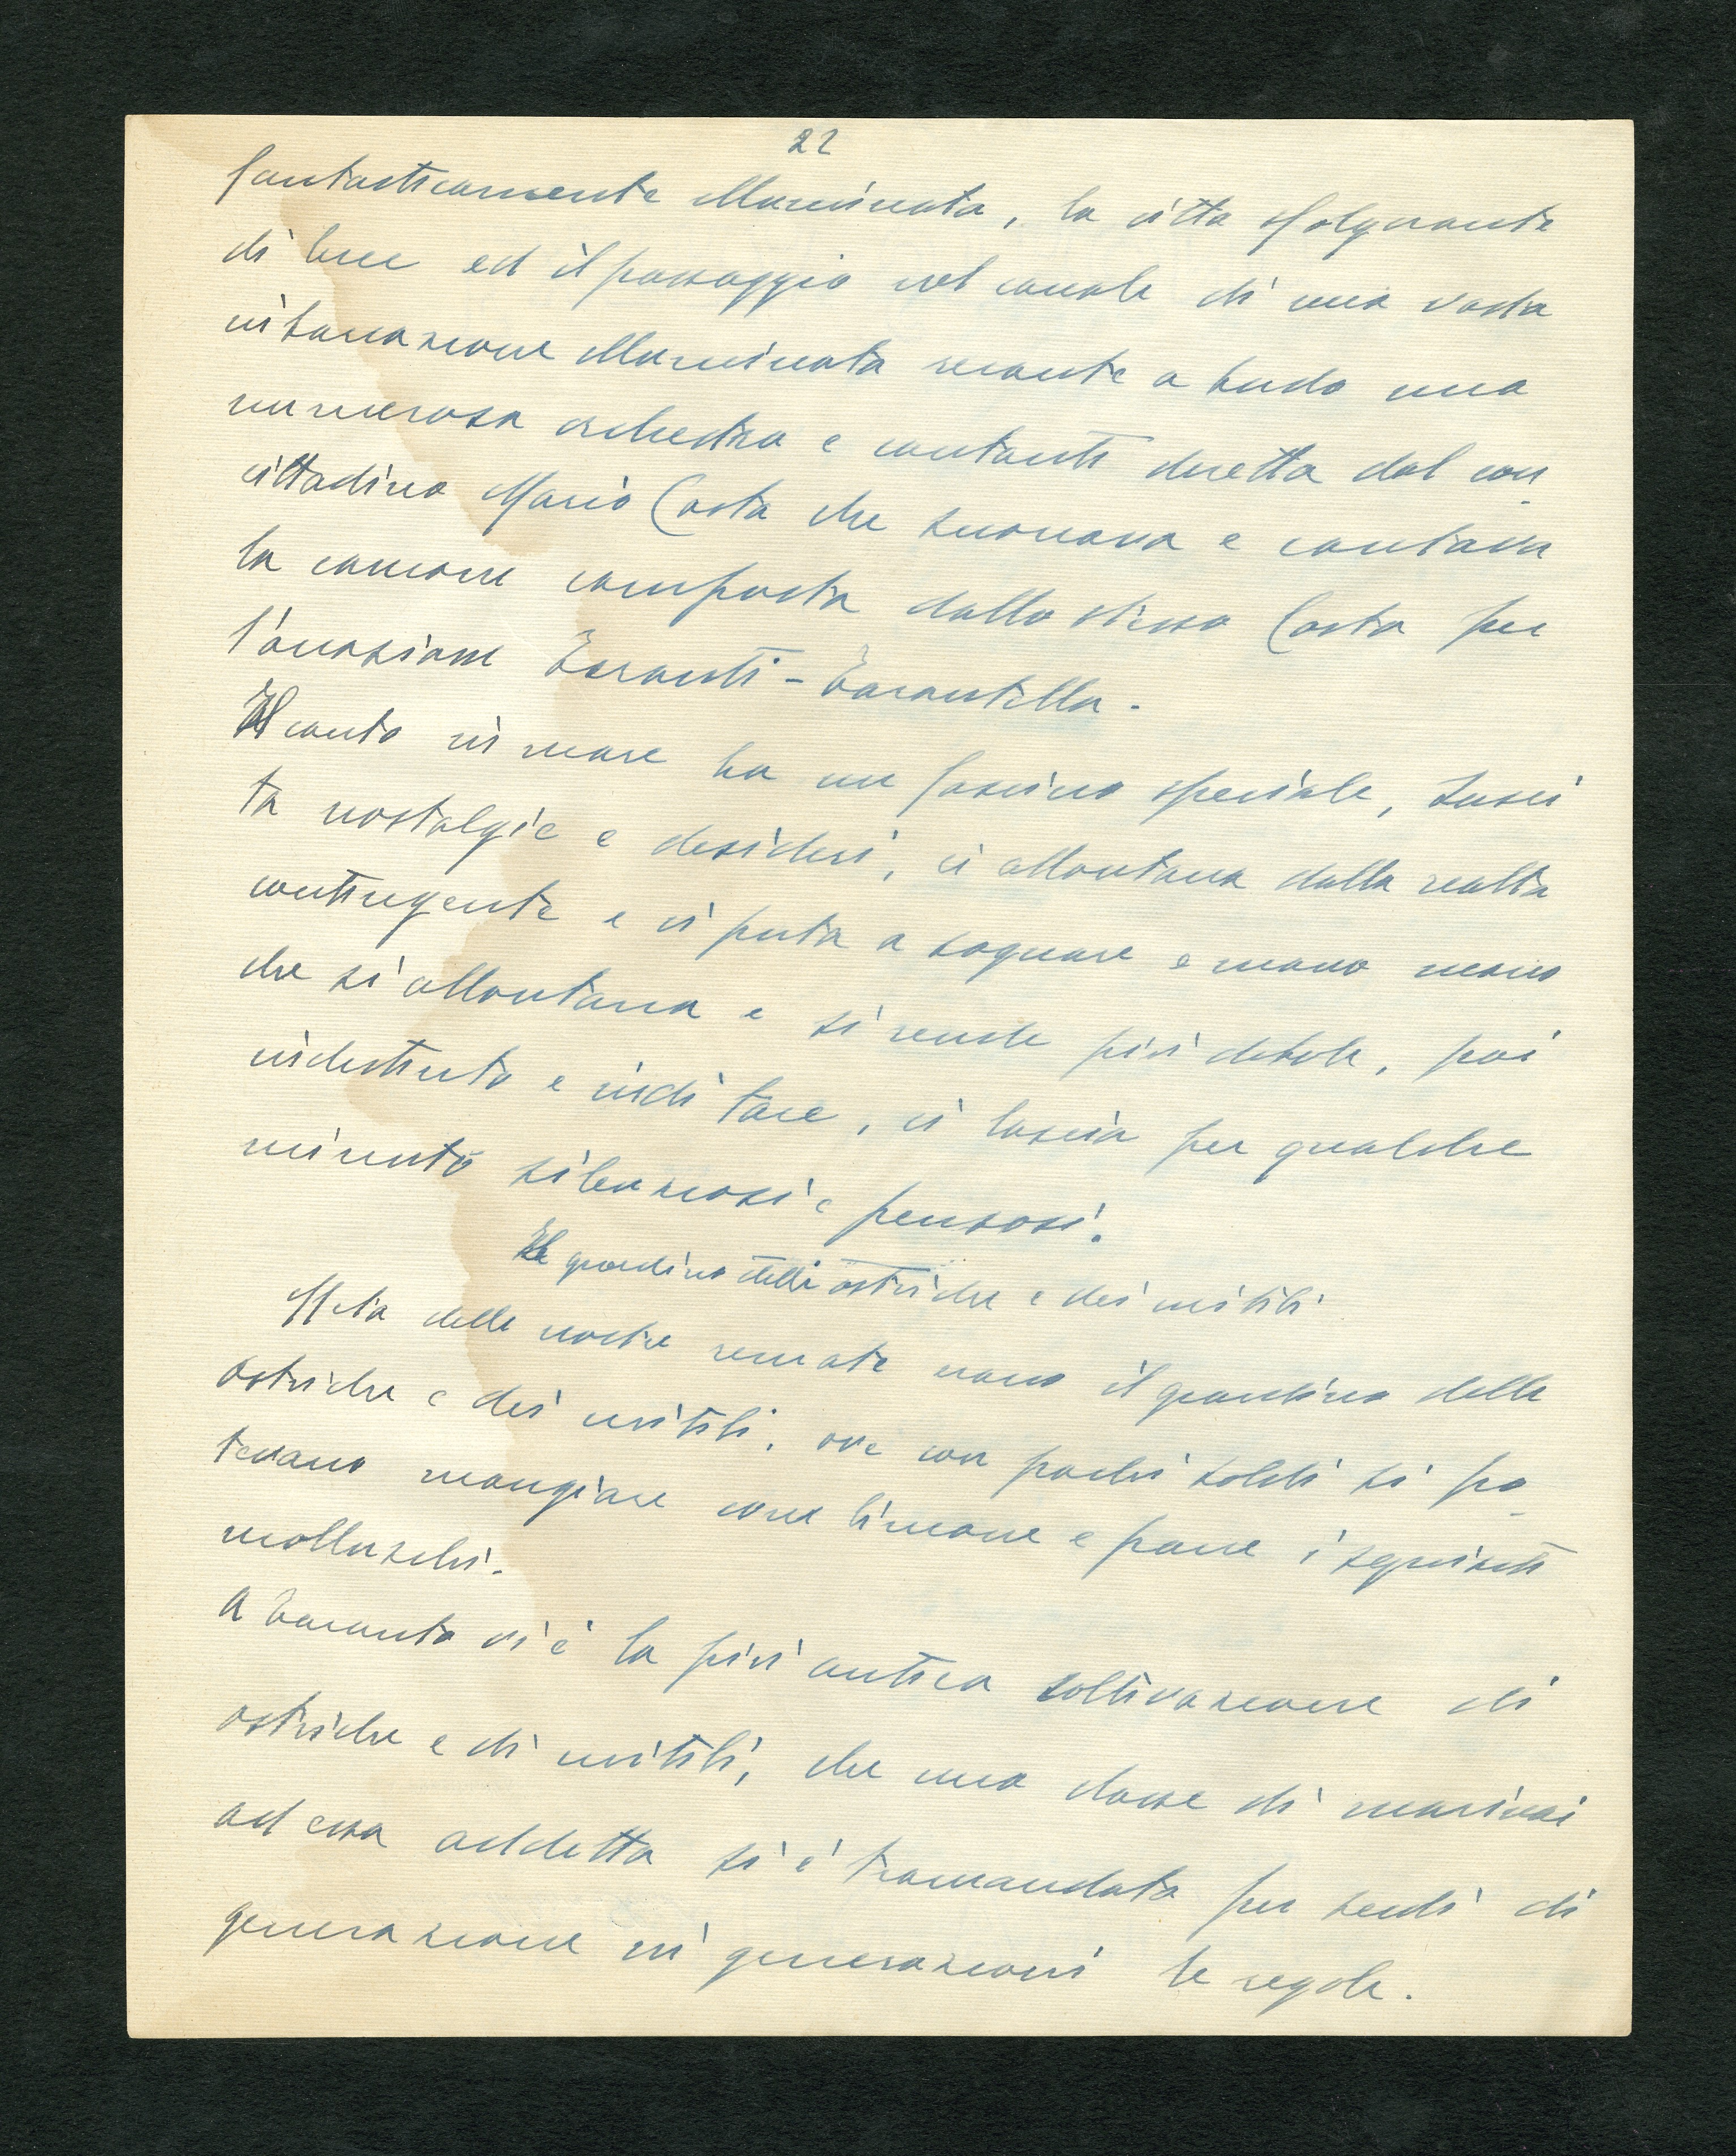 22
fantasticamente illuminata, la citta sfolgorante
di luce ed il passaggio nel canale di una vasta
imbarcazione illuminata recante a bordo una
numerosa orchestra e cantanti diretta dal con
cittadino Mario Costa che suonava e cantava
la canzone composta dallo stesso Costa per
l'occasione Taranti - Tarantella.
Il canto in mare ha un fascino speciale, susci
ta nostalgie e desideri, ci allontana dalla realta
contingente e ci porta a sognare e mano mano
che si allontana e si rende più debole, poi
indistinto e indi tace, ci lascia per qualche
minuto silenziosi e pensosi.
Il giardino delle ostriche e dei mitili
Meta delle nostre remate erano il giardino delle
Ostriche e dei mitili, ove con pochi soldi si po
tevano mangiare con limone e pane i squisiti
molluschi.
A Taranto vi è la più antica coltivazione di
ostriche e di mitili, che una classe di marinai
ad essa addetta si è tramandata per secoli di
generazione in generazioni le regole.